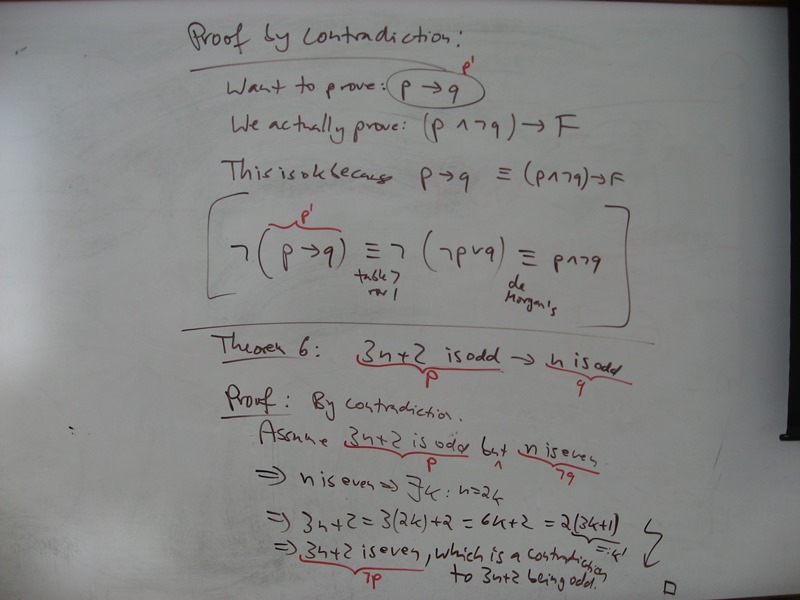 Proof by Contradiction:
p'
Want to prove: p → q
We actually prove: (p ∧ ¬q) → F
This is ok because p → q ≡ (p ∧ ¬q) → F
p'
¬(p → q) ≡ ¬(¬p ∨ q) ≡ p ∧ ¬q
table 7 de
row 1 Morgan's
Theorem 6: 3n+2 is odd → n is odd
p q
Proof: By contradiction.
Assume 3n+2 is odd but n is even
p ∧ ¬q
⇒ n is even ⇒ ∃k: n=2k
⇒ 3n+2 = 3(2k)+2 = 6k+2 = 2(3k+1)
=:k'
⇒ 3n+2 is even, which is a contradiction
¬p to 3n+2 being odd. □